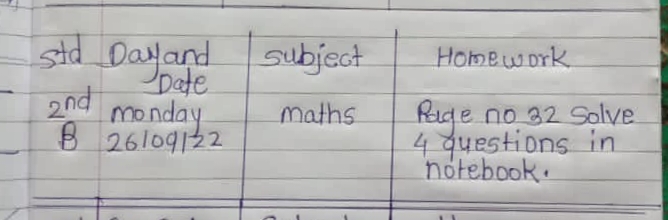 Std Day and Date subject Homework
2nd monday maths Page no 32 Solve
B 26/09/22 4 questions in
notebook.